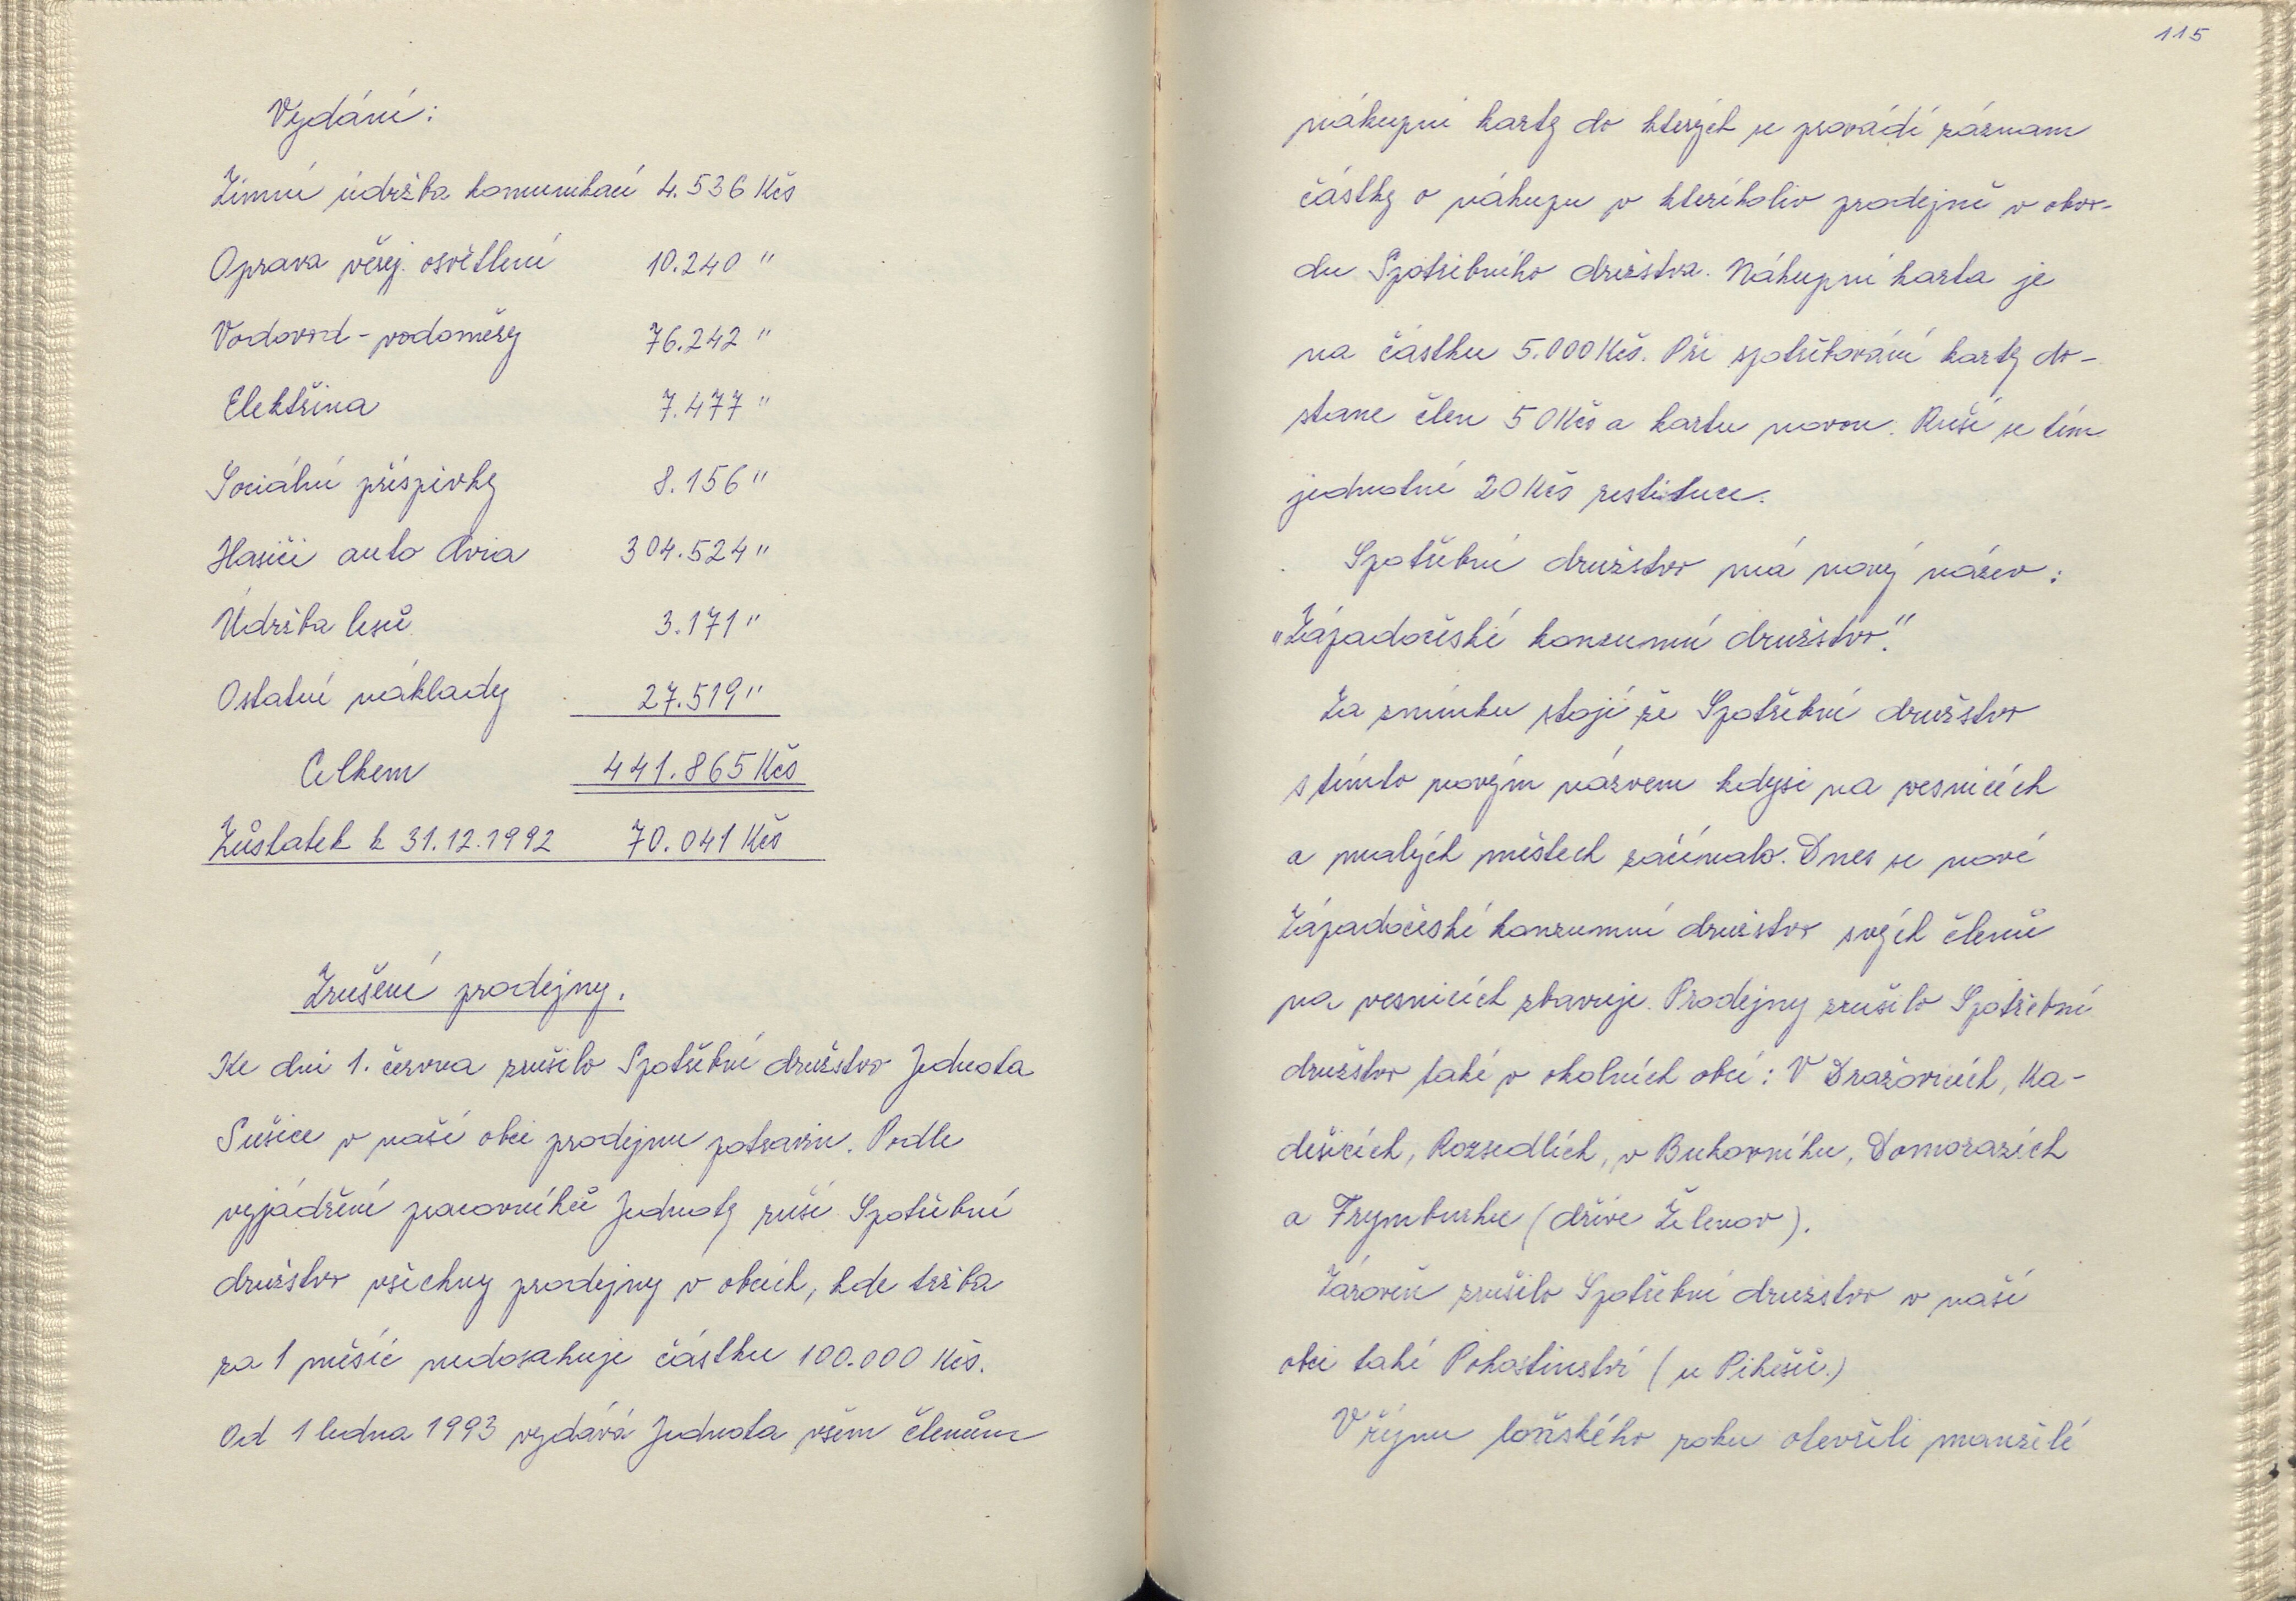 Vydání:
Zimní údržba komunikací 4.536 Kčs
Oprava věřej. osvětlení 10.240 "
Vodovod - vodoměry 76.242 "
Elektřina 7.477 "
Sociální příspěvky 8.156 "
Hasiči auto Avia 304.524 "
Údržba lesů 3.171 "
Ostatní náklady 27.519 "
Celkem 441.865 Kčs
Zůstatek k 31.12.1992 70.041 Kčs
Zrušení prodejny.
Ke dni 1. června zrušilo Spotřební družstvo Jednota
Sušice v naší obci prodejnu potravin. Podle
vyjádření pracovníků Jednoty ruší Spotřební
družstvo všechny prodejny v obcích, kde tržba
za 1 měsíc nedosahuje částku 100.000 Kčs.
Od 1 ledna 1993 vydává Jednota všem členům
115
nákupní karty do kterých se provádí záznam
částky o nákupu v kterékoliv prodejně v obvo-
du Spotřebního družstva. Nákupní karta je
na částku 5.000 Kčs. Při spotřebování karty do-
stane člen 50 Kčs a kartu novou. Ruší se tím
jednotné 20 Kčs restituce.
Spotřební družstvo má nový název:
"Západočeské konzumní družstvo."
Za zmínku stojí že Spotřební družstvo
s tímto novým názvem kdysi na vesnicích
a malých městech začínalo. Dnes se nové
Západočeské konzumní družstvo svých členů
na vesnicích zbavuje. Prodejny zrušilo Spotřební
družstvo také v okolních obcí: V Dražovicích, Ka-
dešicích, Rozsedlích, v Bukovníku, Domorazích
a Frymburku (dříve Želenov).
Zároveň zrušilo Spotřební družstvo v naší
obci také Pohostinství (u Pikešů.)
V říjnu loňského roku otevřeli manželé